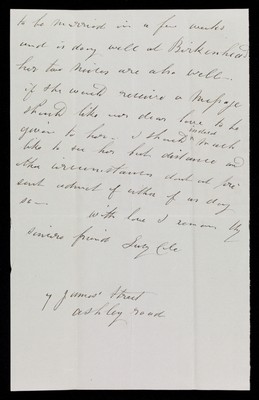 to be married in a few weeks
and is doing well at Birkenhead
her two Nieces are also well -
if she would receive a Message
should like our dear love to be
given to her. I should indeed much
like to see her but distance and
other circumstances dont at pre-
sent admit of either of us doing
so - with love I remain thy
sincere friend Lucy
7 James Street
Ashley road